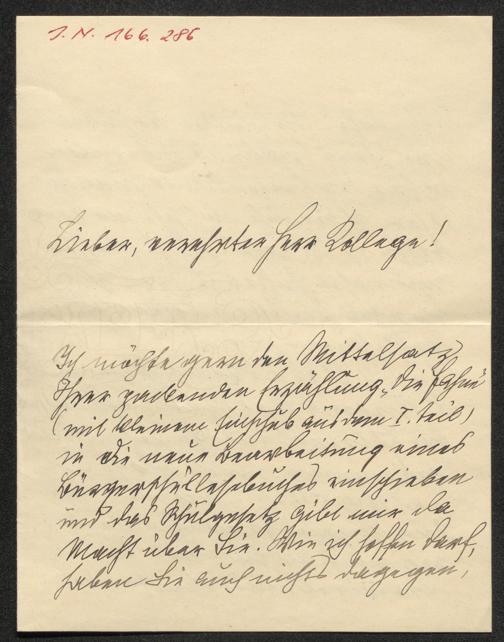 J.N. 166.286
Lieber, verehrter Herr Kollege!
Ich möchte gern den Mittelsatz
Ihrer packenden Erzählung „Die
(mit kleinem Einschub aus dem I. Teil)
in die neue Bearbeitung eines
Bürgerschullesebuches einschieben
und das Schulgesetz gibt mir da
Macht über Sie. Wie ich hoffen darf,
haben Sie auch nichts dagegen,